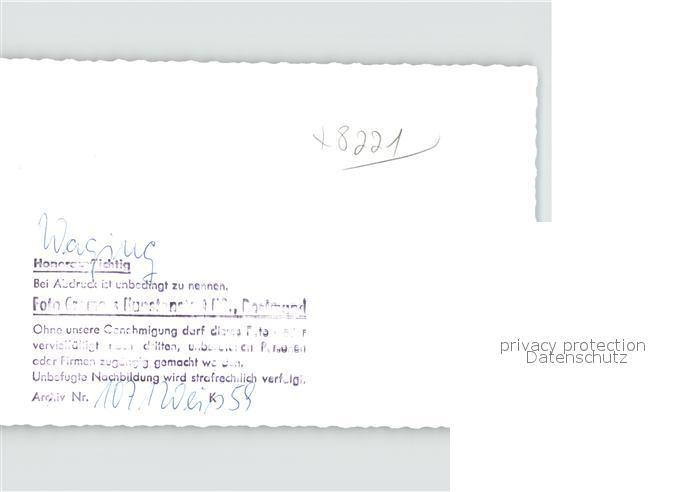 x8221
Waging
Honorarpflichtig
Bei Abdruck ist unbedingt zu nennen.
Foto Cramers Kunstanstalt KG., Dortmund
Ohne unsere Genehmigung darf dieses Foto
vervielfältigt noch dritten, unberufenen Personen
oder Firmen zugängig gemacht werden.
Unbefugte Nachbildung wird strafrechtlich verfolgt.
Archiv Nr. 107, K 59
privacy protection
Datenschutz